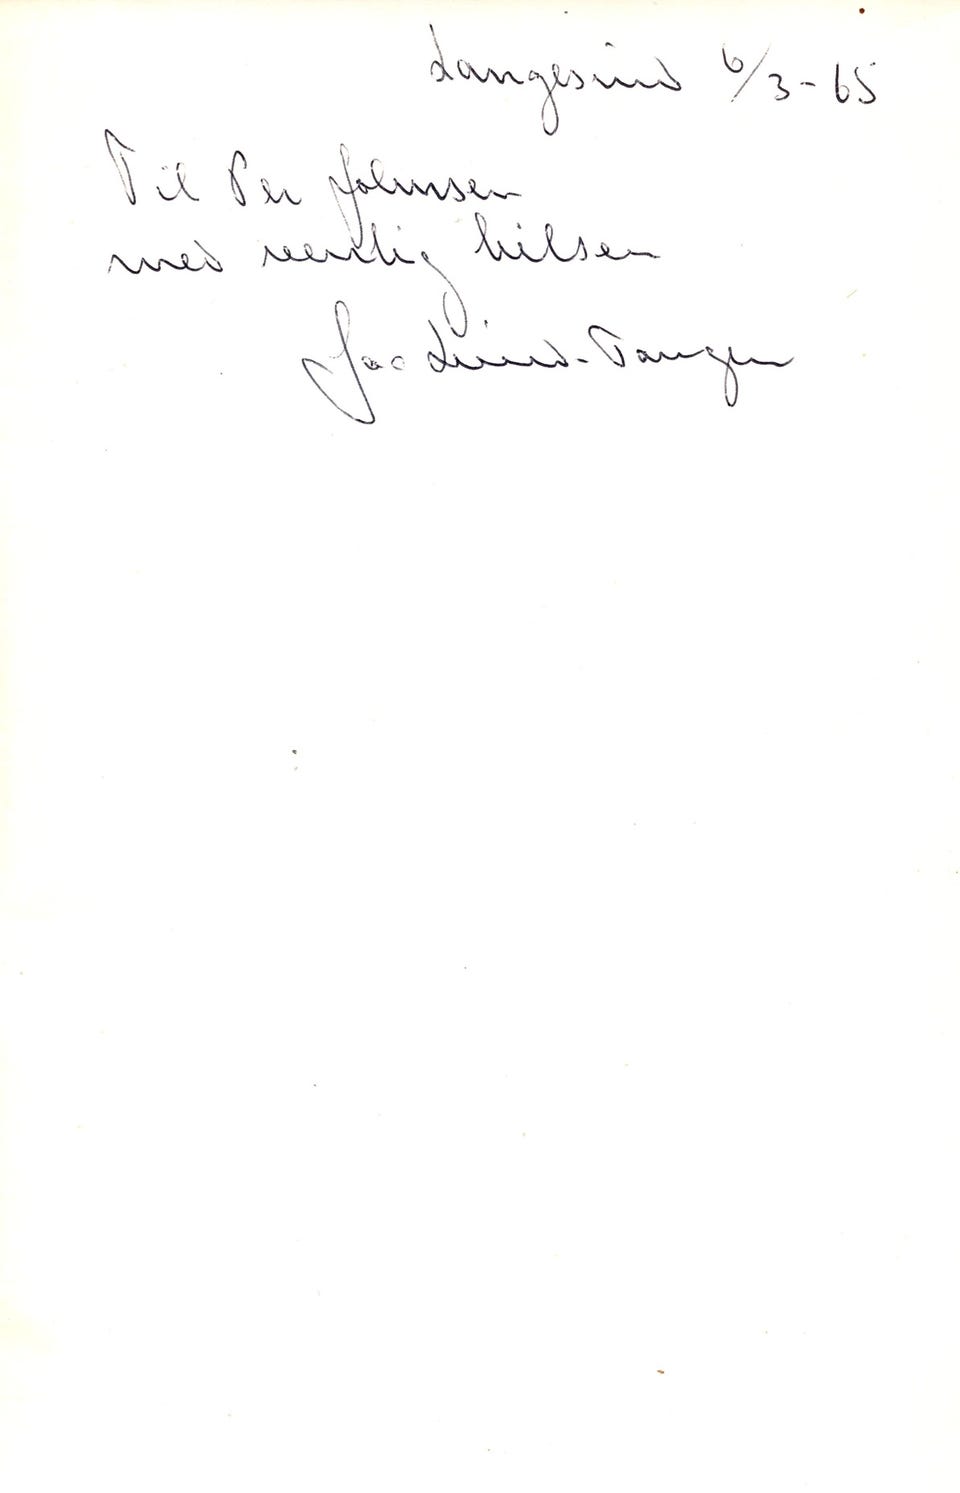 Langesund 6/3-65
Til Per Johnsen
med vennlig hilsen
Jac Lund-Tangen